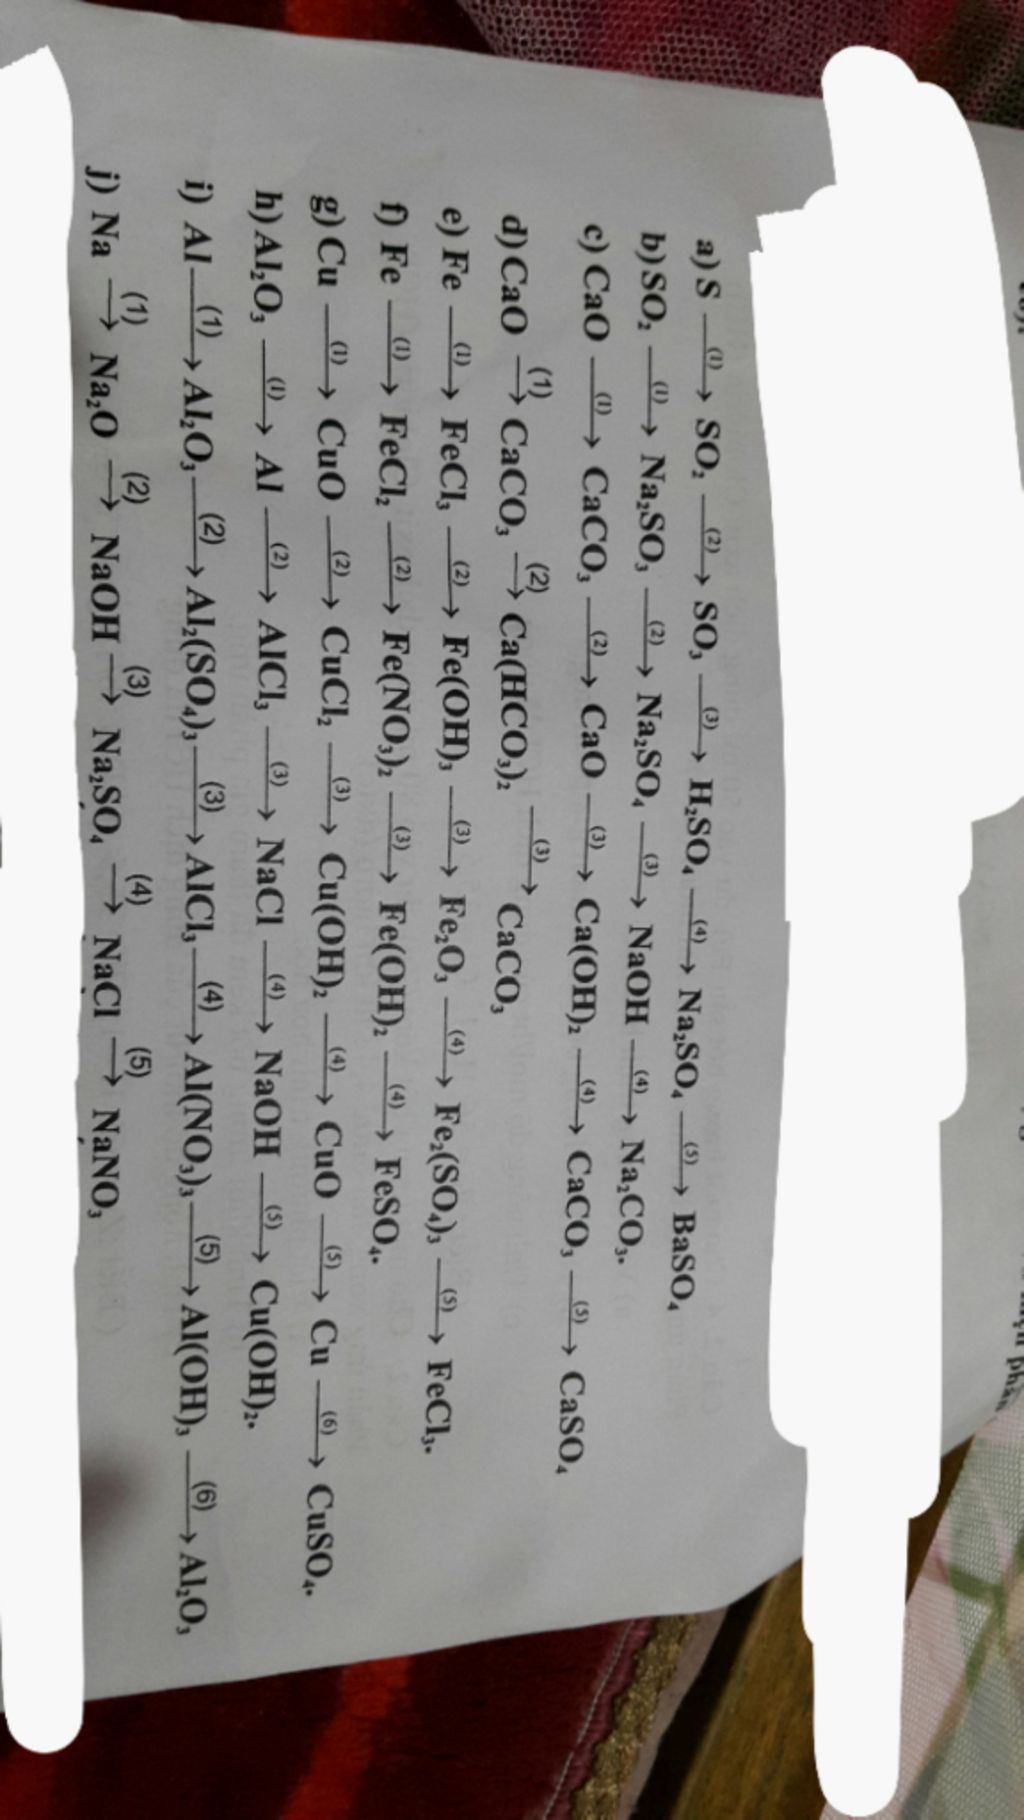 a) S —(1)→ SO₂ —(2)→ SO₃ —(3)→ H₂SO₄ —(4)→ Na₂SO₄ —(5)→ BaSO₄
b) SO₂ —(1)→ Na₂SO₃ —(2)→ Na₂SO₄ —(3)→ NaOH —(4)→ Na₂CO₃.
c) CaO —(1)→ CaCO₃ —(2)→ CaO —(3)→ Ca(OH)₂ —(4)→ CaCO₃ —(5)→ CaSO₄
d) CaO —(1)→ CaCO₃ —(2)→ Ca(HCO₃)₂ —(3)→ CaCO₃
e) Fe —(1)→ FeCl₃ —(2)→ Fe(OH)₃ —(3)→ Fe₂O₃ —(4)→ Fe₂(SO₄)₃ —(5)→ FeCl₃.
f) Fe —(1)→ FeCl₂ —(2)→ Fe(NO₃)₂ —(3)→ Fe(OH)₂ —(4)→ FeSO₄.
g) Cu —(1)→ CuO —(2)→ CuCl₂ —(3)→ Cu(OH)₂ —(4)→ CuO —(5)→ Cu —(6)→ CuSO₄.
h) Al₂O₃ —(1)→ Al —(2)→ AlCl₃ —(3)→ NaCl —(4)→ NaOH —(5)→ Cu(OH)₂.
i) Al —(1)→ Al₂O₃ —(2)→ Al₂(SO₄)₃ —(3)→ AlCl₃ —(4)→ Al(NO₃)₃ —(5)→ Al(OH)₃ —(6)→ Al₂O₃
j) Na —(1)→ Na₂O —(2)→ NaOH —(3)→ Na₂SO₄ —(4)→ NaCl —(5)→ NaNO₃